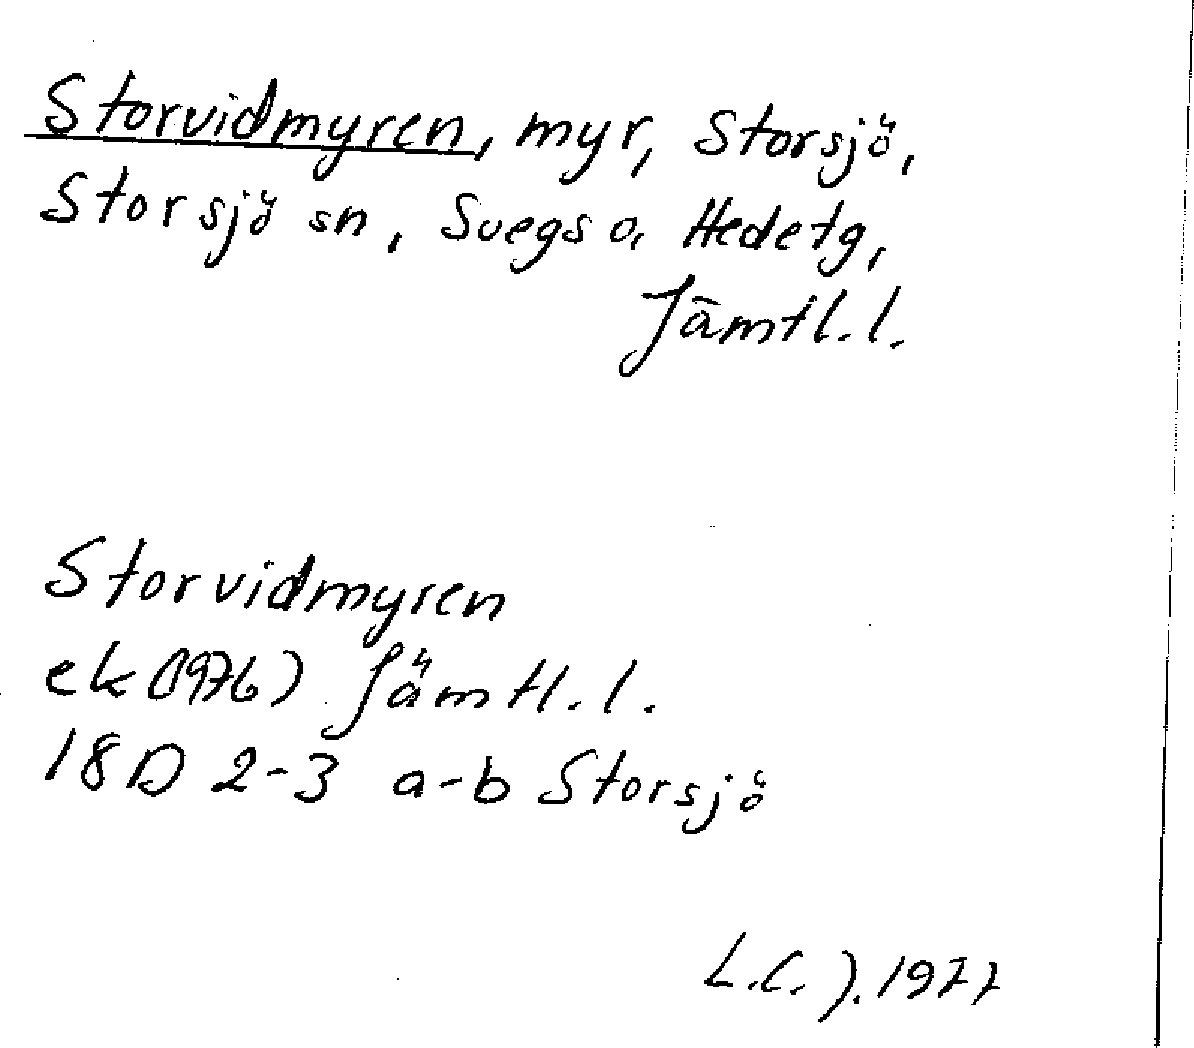 Storvidmyren, myr, Storsjö,
Storsjö sn, Svegs o. Hedetg,
Jämtl.l.
Storvidmyren
ek (1976) Jämtl.l.
18D 2-3 a-b Storsjö
L.C. J. 1977